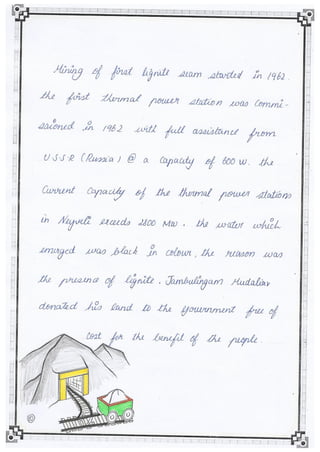 Mining of first lignite seam started in 1962.
the first thermal power station was Commi-
ssioned in 1962 with full assistance from
U.S.S.R (Russia) @ a Capacity of 600 W. the
Current Capacity of the thermal power stations
in Neyveli exceeds 2800 MW. the water which
emerged was black in colour, the reason was
the presence of lignite. Jambulingam Mudaliar
donated his land to the government free of
Cost for the benefit of the people.